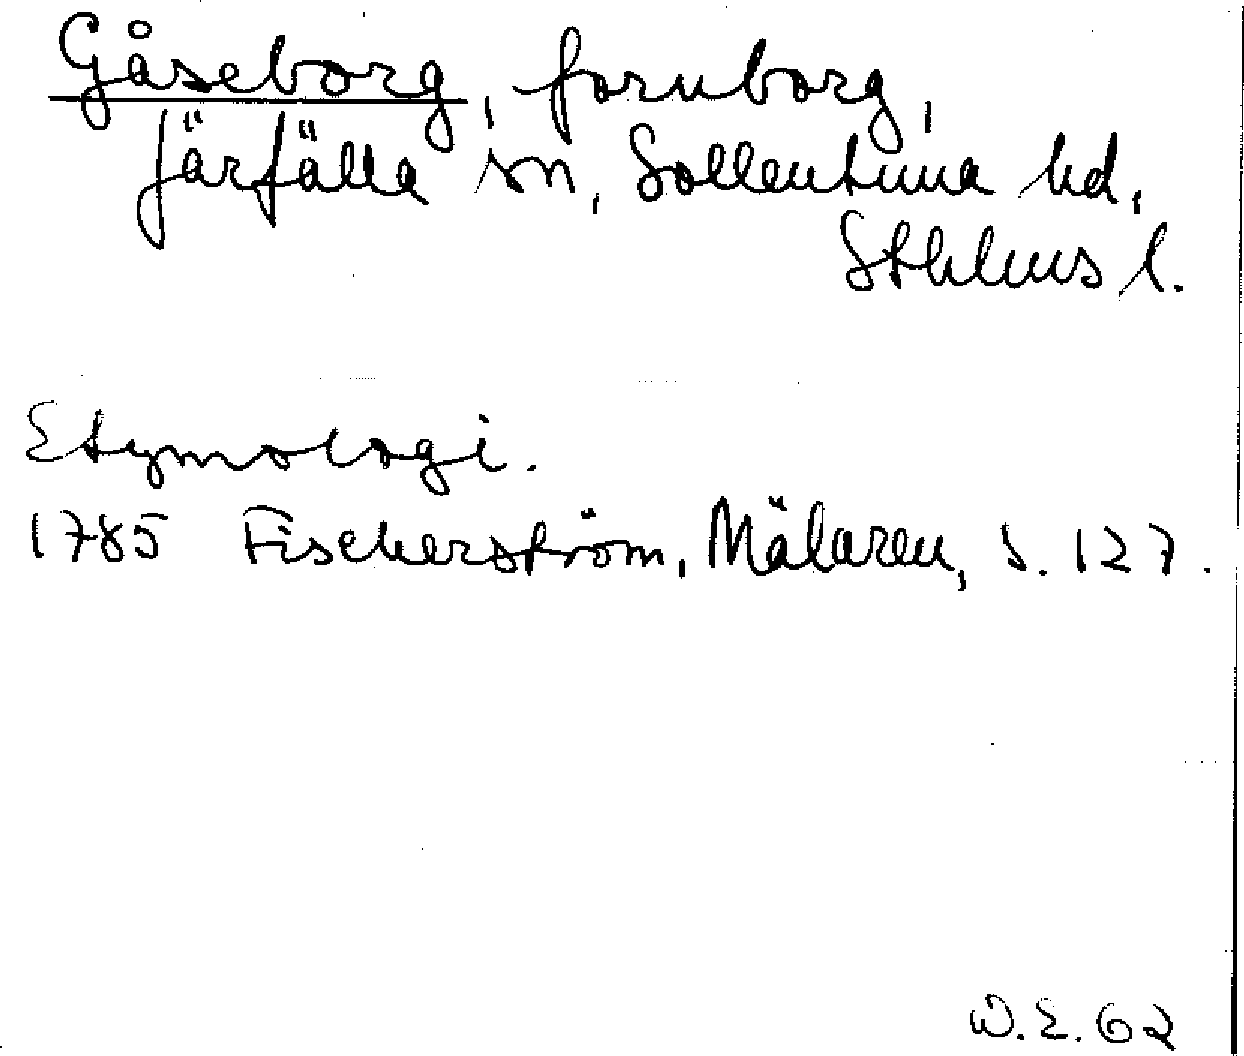 Gåseborg, fornborg,
Järfälla sn, Sollentuna hd,
Sthlms l.
Etymologi.
1785 Fischerström, Mälaren, s. 127.
W.E. 62